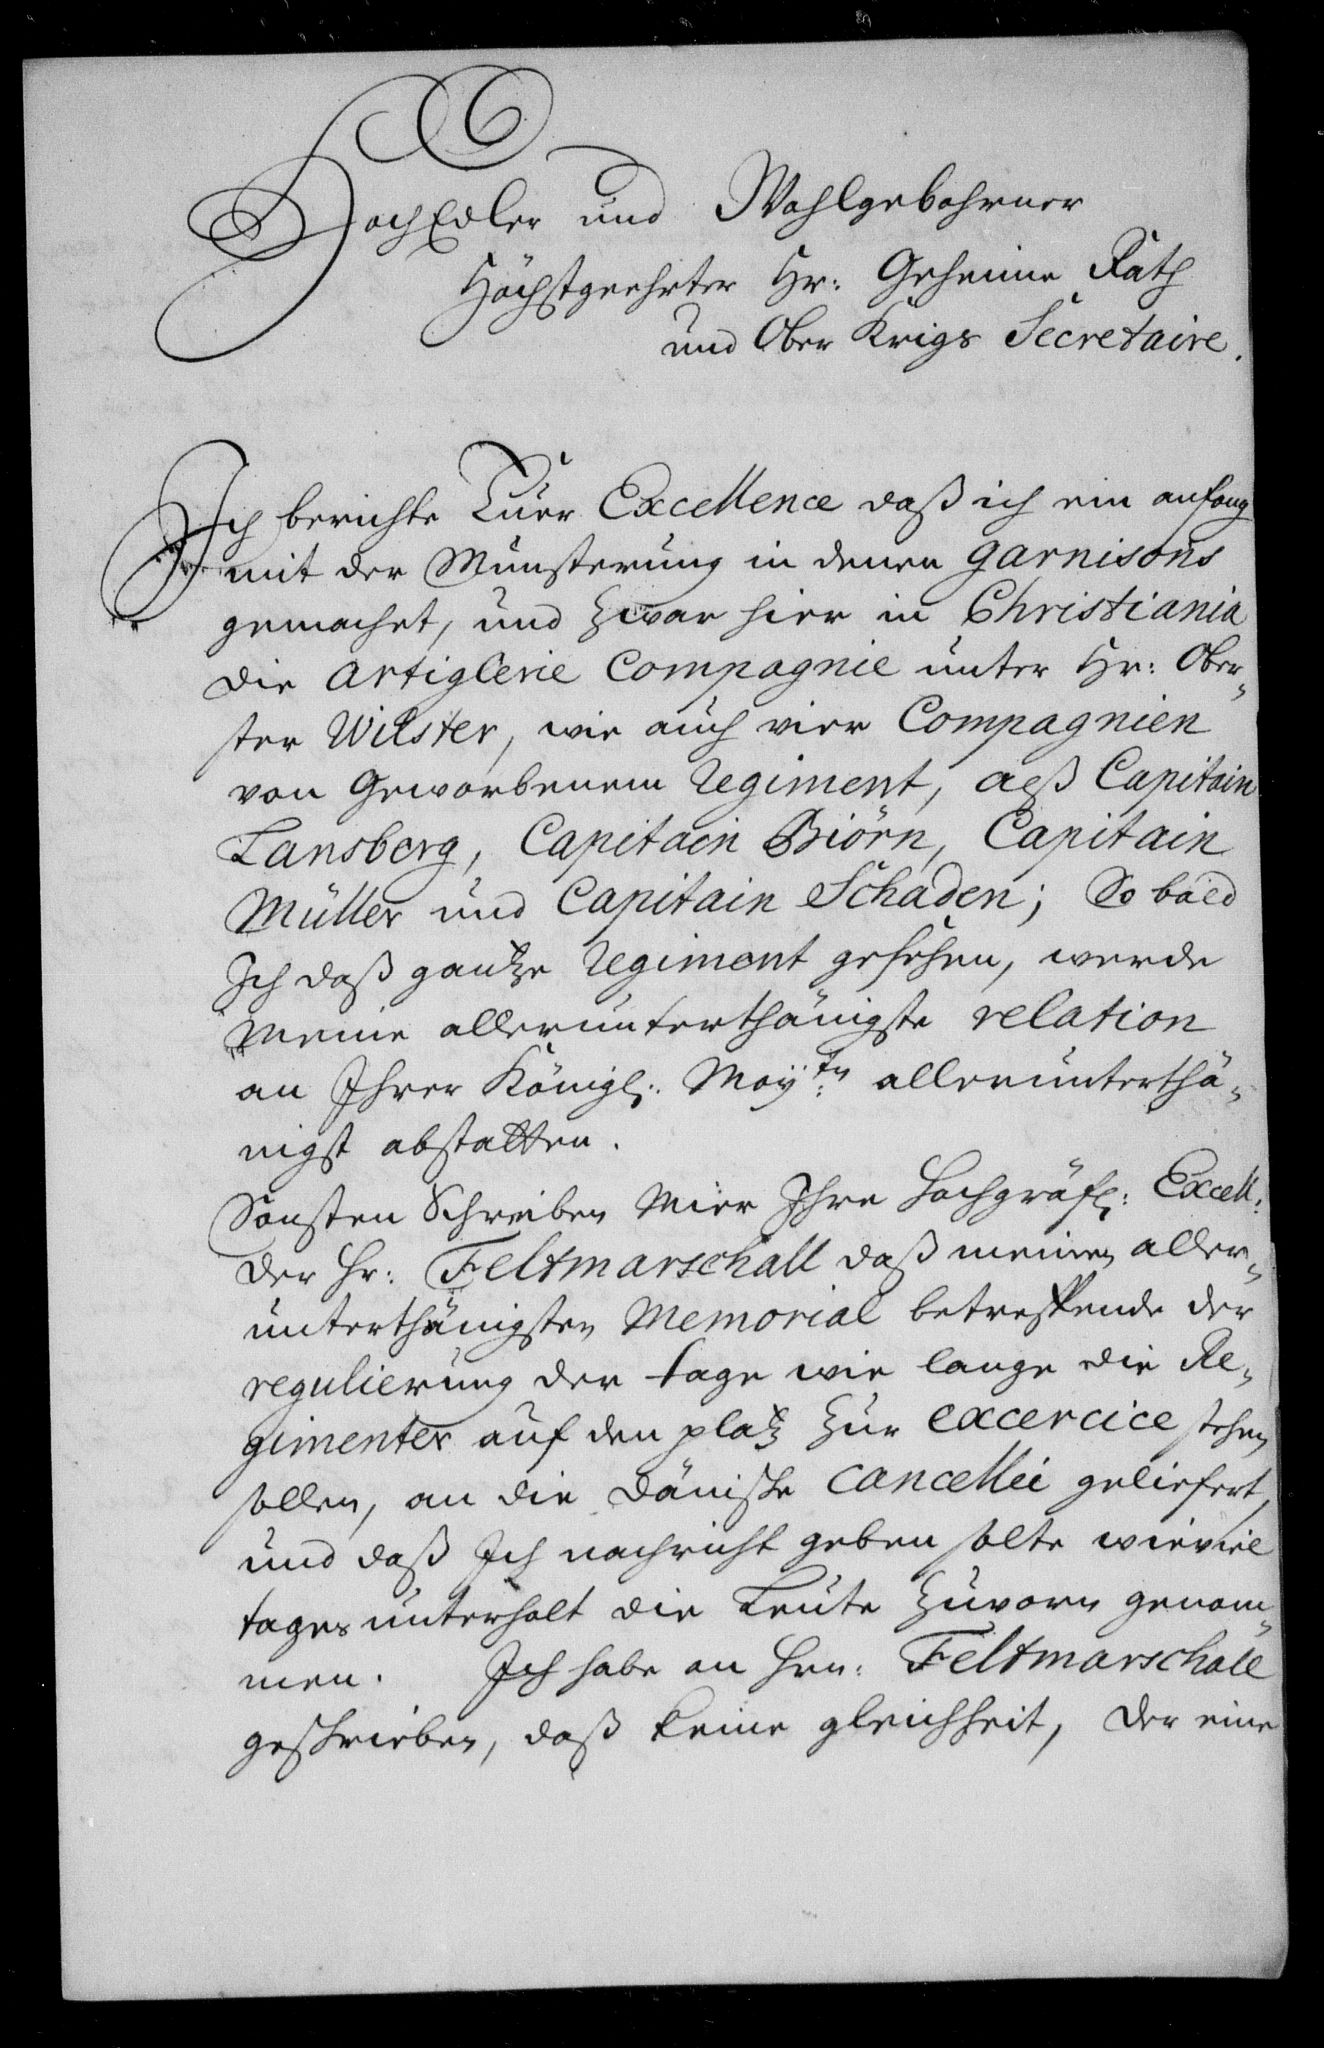 HochEdler und Wohlgebohrner
Höchstgeehrter Hr: Geheime Rath
und Ober Krigs Secretaire.
Ich berichte Euer Excellence daß ich ein anfang
mit der Munsterung in denen garnisons
gemachet, und zwar hier in Christiania
die Artiglerie Compagnie unter Hr: Ober-
ster Wilster, wie auch vier Compagnien
von Geworbenem Regiment, alß Capitain
Lansberg, Capitain Biörn, Capitain
Müller und Capitain Schaden; So bald
Ich daß gantze Regiment gesehen, werde
meine allerunterthänigste relation
an Ihrer Königl: Mayt:en allerunterthä-
nigst abstatten.
Sonsten Schreiben Mier Ihre Hochgräfl: Excell:
der Hr: Feltmarschall daß meinen aller-
unterthänigsten Memorial betreffende der
regulierung der tage wie lange die Re-
gimenter auf den platz zur excercice stehen
sollen, an die Dänische Cancellei geliefert,
und daß Ich nachricht geben solte wieviel
tages unterhalt die Leute zuvorn genom-
men. Ich habe an Hrn: Feltmarschall
geschrieben, daß keine gleichheit, der eine